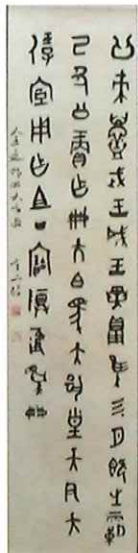 公朿鑄武王成王異鼎隹四月既生霸
己丑公賞乍冊大白馬大揚皇天尹大
保室用乍且丁寶尊彝